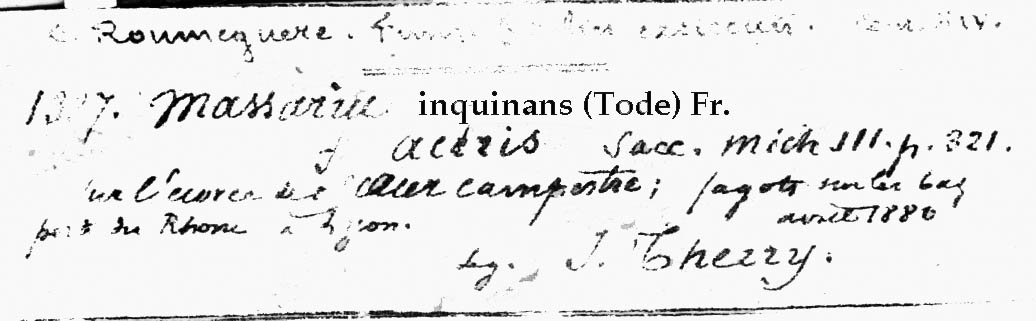 C. Roumeguere. Fungi Gallici exsiccati. Cent. XIV.
1317. Massaria inquinans (Tode) Fr.
f aceris Sacc. Mich III. p. 321.
sur l'écorce de l'Acer campestre; fagots sur les bas
port du Rhone à Lyon. avril 1880
leg. J. Therry.